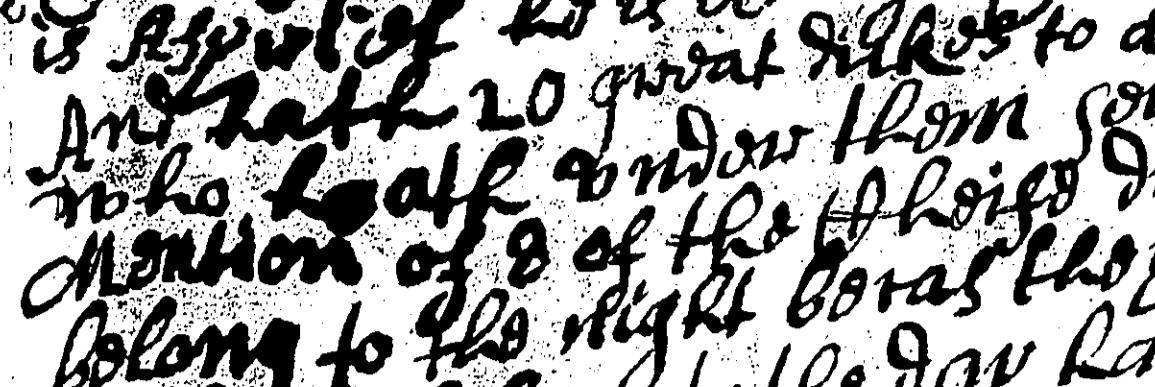 is A spirit of he is
And hath 20 great dukes to
who hath vnder them
Mention of 8 of the Cheife
belong to the night becas they
the Day